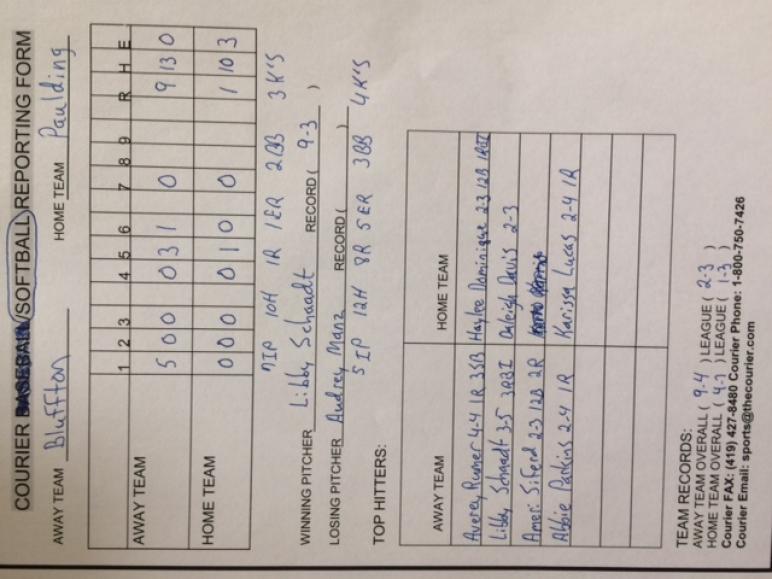 COURIER BASEBALL/SOFTBALL REPORTING FORM
AWAY TEAM Bluffton HOME TEAM Paulding
1 2 3 4 5 6 7 8 9 R H E
AWAY TEAM 5 0 0 0 3 1 0 9 13 0
HOME TEAM 0 0 0 0 1 0 0 1 10 3
7IP 10H 1R 1ER 2BB 3K'S
WINNING PITCHER Libby Schaadt RECORD ( 9-3 )
LOSING PITCHER Audrey Manz RECORD ( )
5IP 12H 8R 5ER 3BB 4K'S
TOP HITTERS:
AWAY TEAM HOME TEAM
Averey Rumer 4-4 1R 3SB Haylee Dominique 2-3 12B 1RBI
Libby Schaadt 3-5 3RBI Davis 2-3
Ameri Siferd 2-3 12B 2R
Abbie Parkins 2-4 1R Karissa Lucas 2-4 1R
TEAM RECORDS:
AWAY TEAM OVERALL ( 9-4 ) LEAGUE ( 2-3 )
HOME TEAM OVERALL ( 4-7 ) LEAGUE ( 1-3 )
Courier FAX: (419) 427-8480 Courier Phone: 1-800-750-7426
Courier Email: sports@thecourier.com